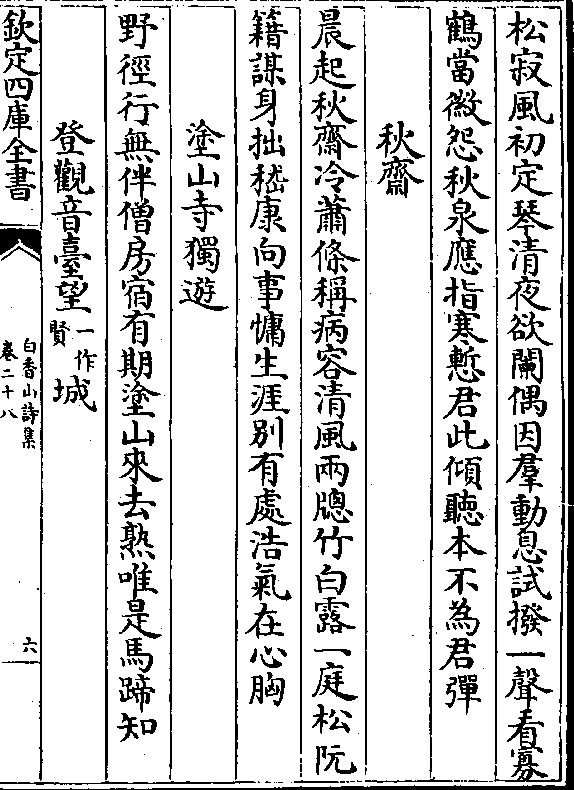 松寂風初定琴清夜欲闌偶因羣動息試撥一聲看寡
鶴當徽怨秋泉應指寒慙君此傾聽本不為君彈
秋齋
晨起秋齋冷蕭條稱病容清風兩牕竹白露一庭松阮
籍謀身拙嵇康向事慵生涯別有處浩氣在心胸
塗山寺獨遊
野徑行無伴僧房宿有期塗山來去熟唯是馬蹄知
登觀音臺望一作賢城
欽定四庫全書
白香山詩集
卷二十八
六